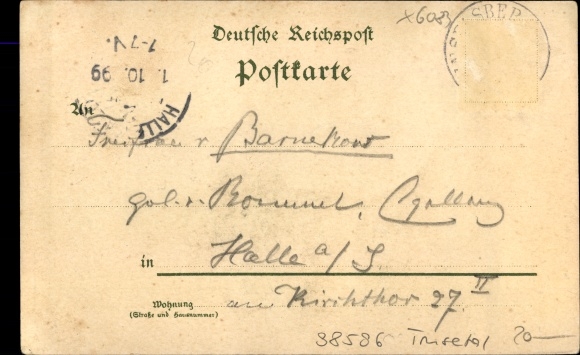 x6083
SBER
Deutsche Reichspost
Postkarte
1. 10. 99
7-8 V.
HALLE
An
Freifrau v Barnekow
geb. v. Rommel,
in Halle a/S
Wohnung am Kirchthor 27 II
(Straße und Hausnummer)
38586 20